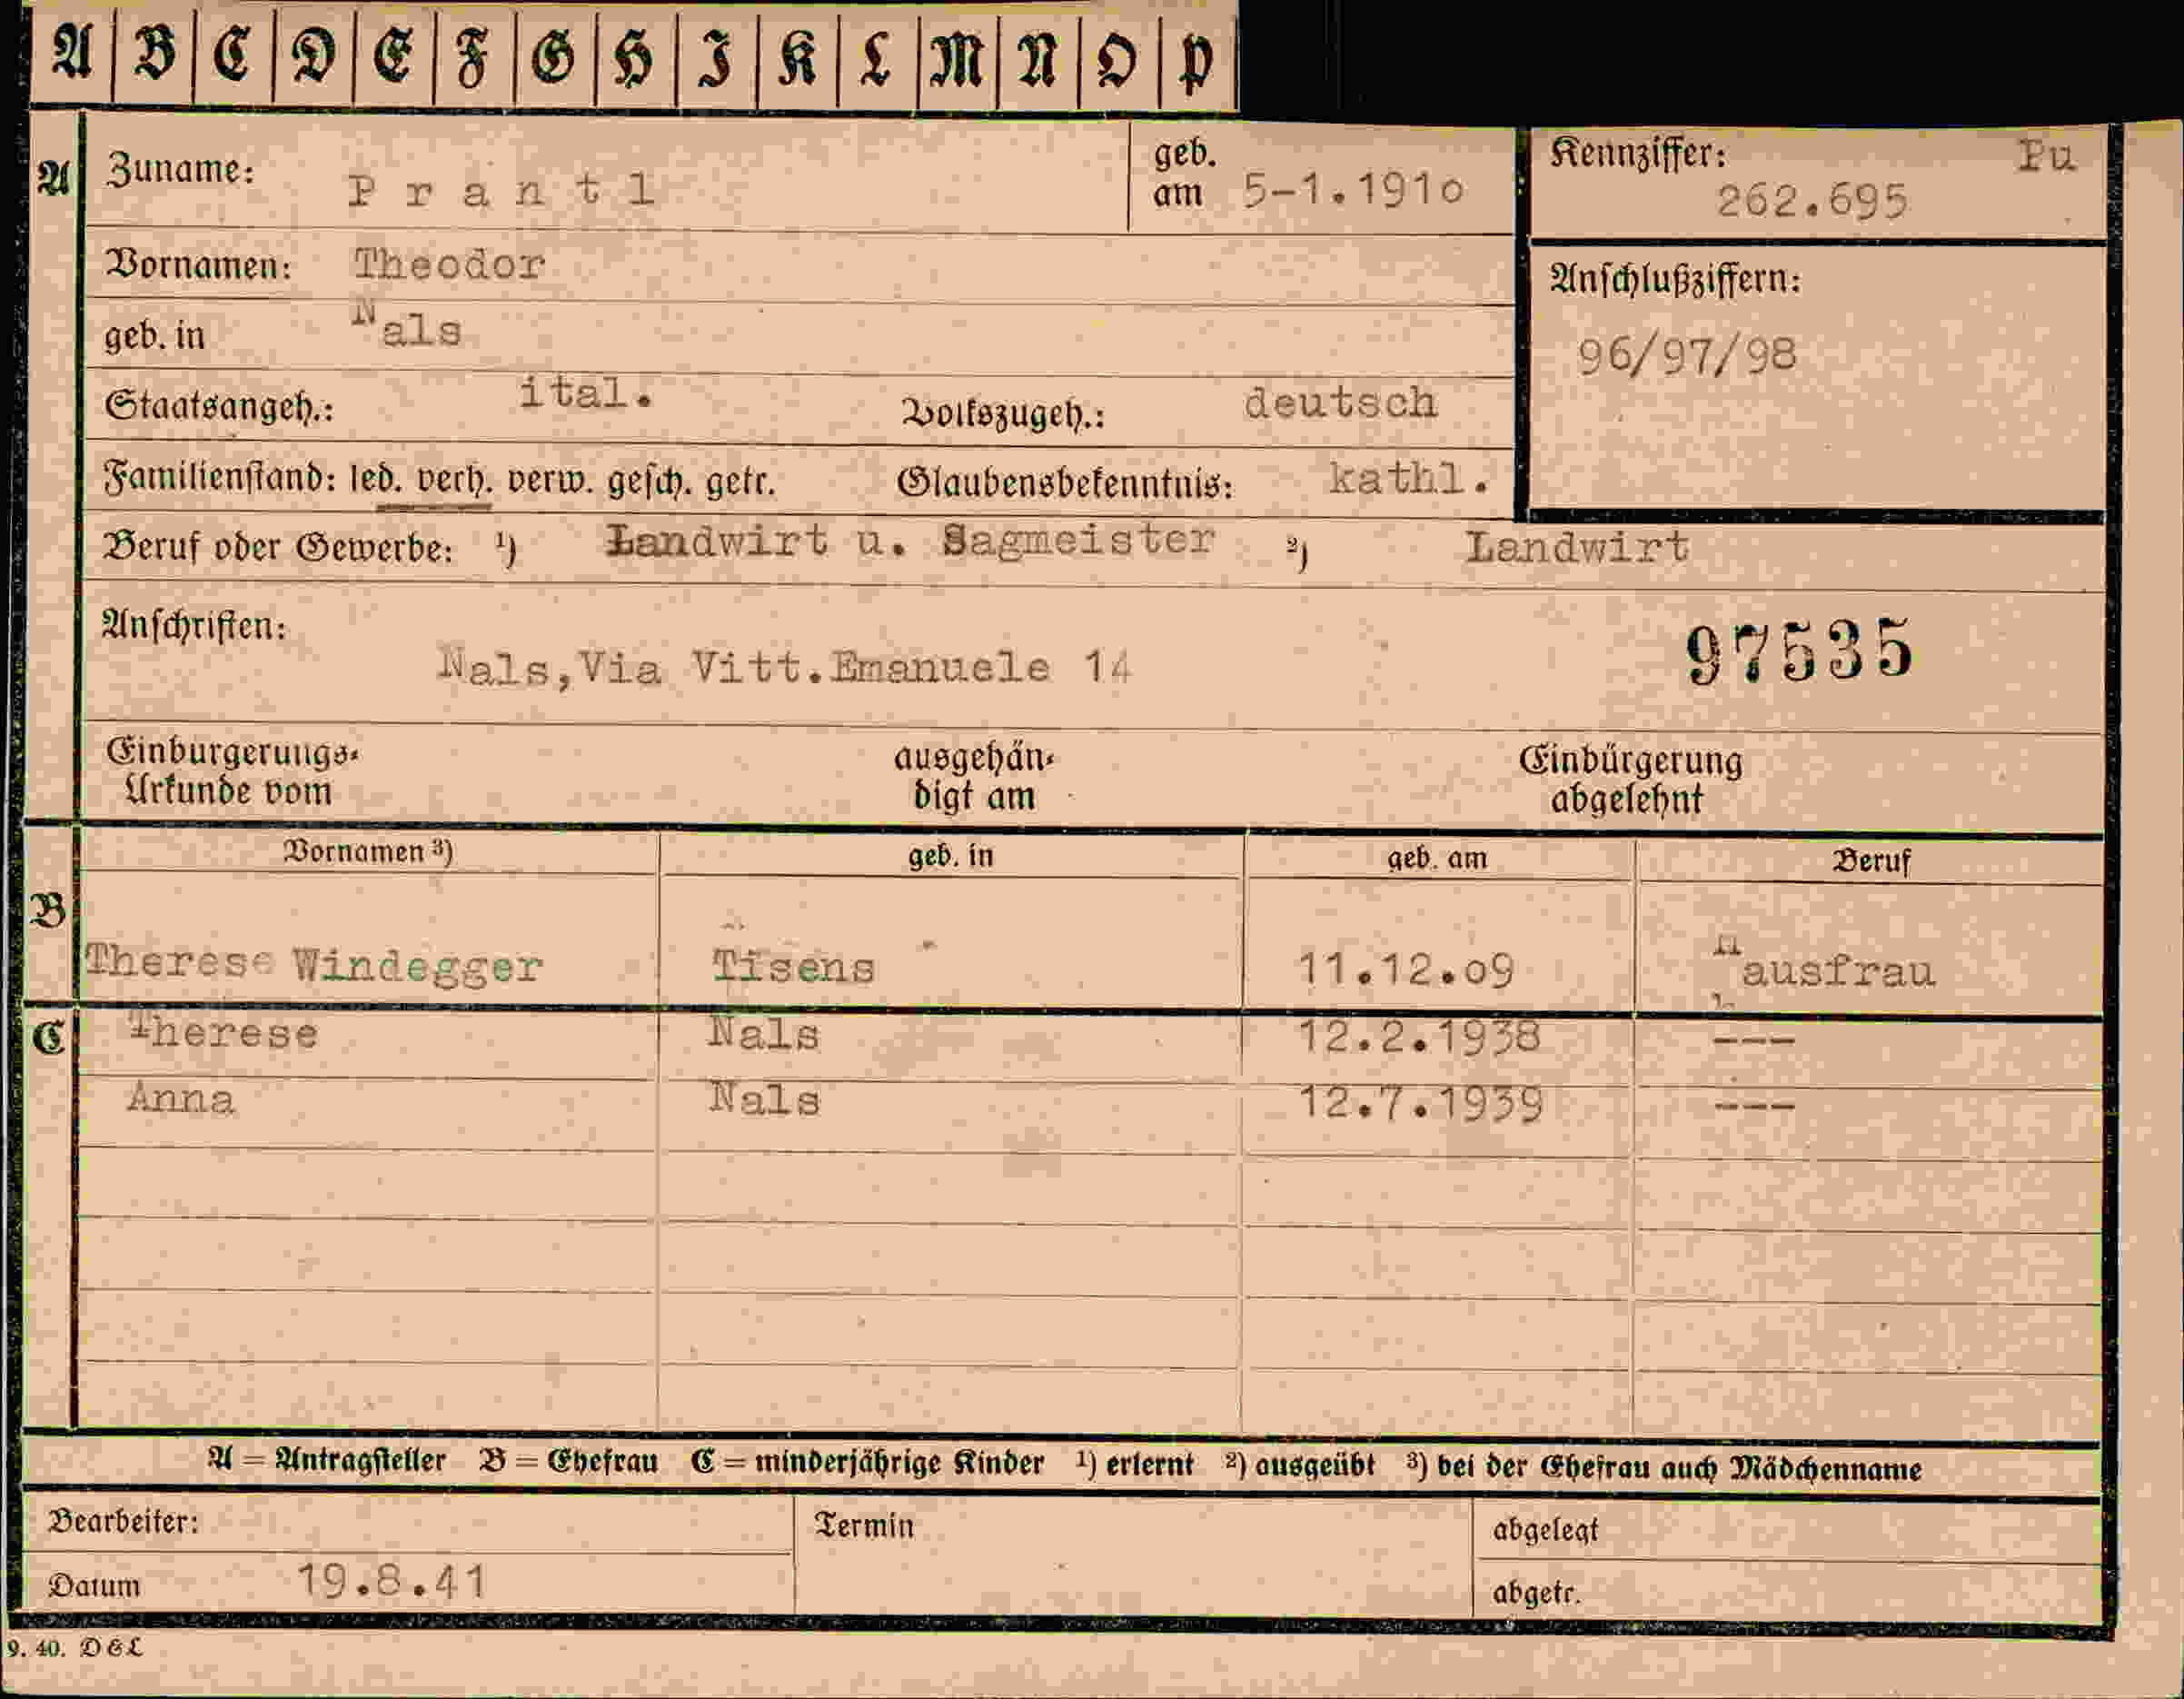 A B C D E F G H I K L M N O P
A Zuname: Prantl geb. am 5-1.1910 Kennziffer: Pu 262.695
Vornamen: Theodor
Anschlußziffern: 96/97/98
geb. in Nals
Staatsangeh.: ital. Volkszugeh.: deutsch
Familienstand: led. verh. verw. gesch. getr. Glaubensbekenntnis: kathl.
Beruf oder Gewerbe: ¹) Landwirt u. Sagmeister ²) Landwirt
Anschriften: Nals,Via Vitt.Emanuele 14 97535
Einbürgerungs-Urkunde vom ausgehändigt am Einbürgerung abgelehnt
Vornamen ³) geb. in geb. am Beruf
B Therese Windegger Tisens 11.12.09 Hausfrau
C Therese Nals 12.2.1938 ---
Anna Nals 12.7.1939 ---
A = Antragsteller B = Ehefrau C = minderjährige Kinder ¹) erlernt ²) ausgeübt ³) bei der Ehefrau auch Mädchenname
Bearbeiter: Termin abgelegt
Datum 19.8.41 abgetr.
9. 40. DEL